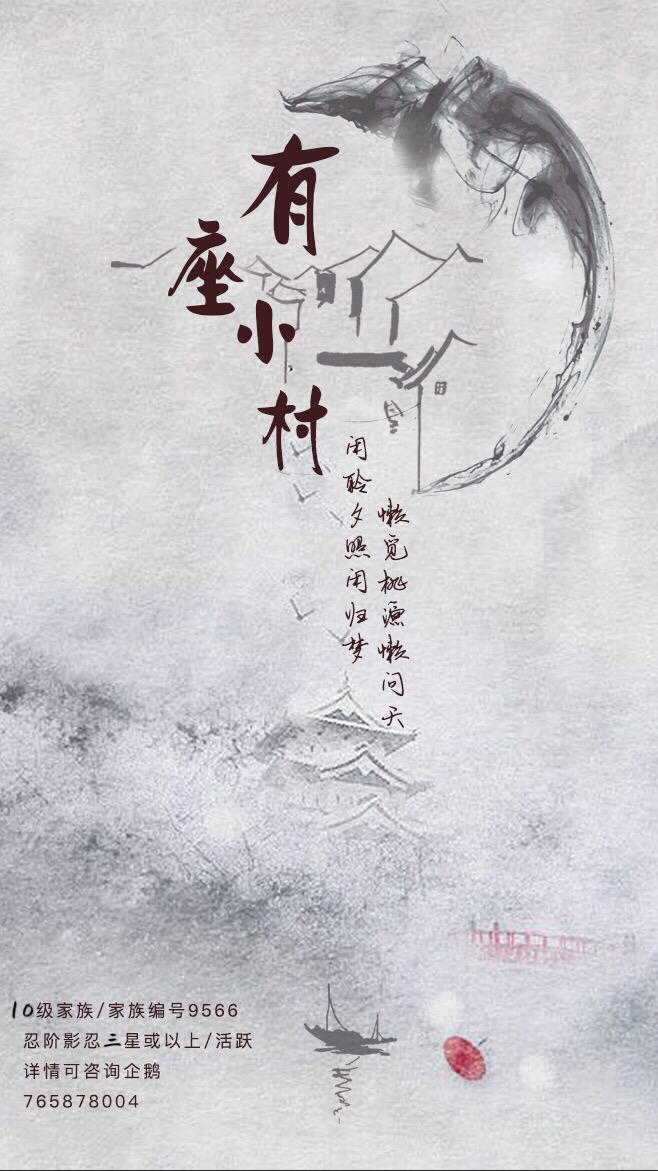 有座小村
懒觅桃源懒问天
闲聆夕照闲归梦
10级家族/家族编号9566
忍阶影忍三星或以上/活跃
详情可咨询企鹅
765878004